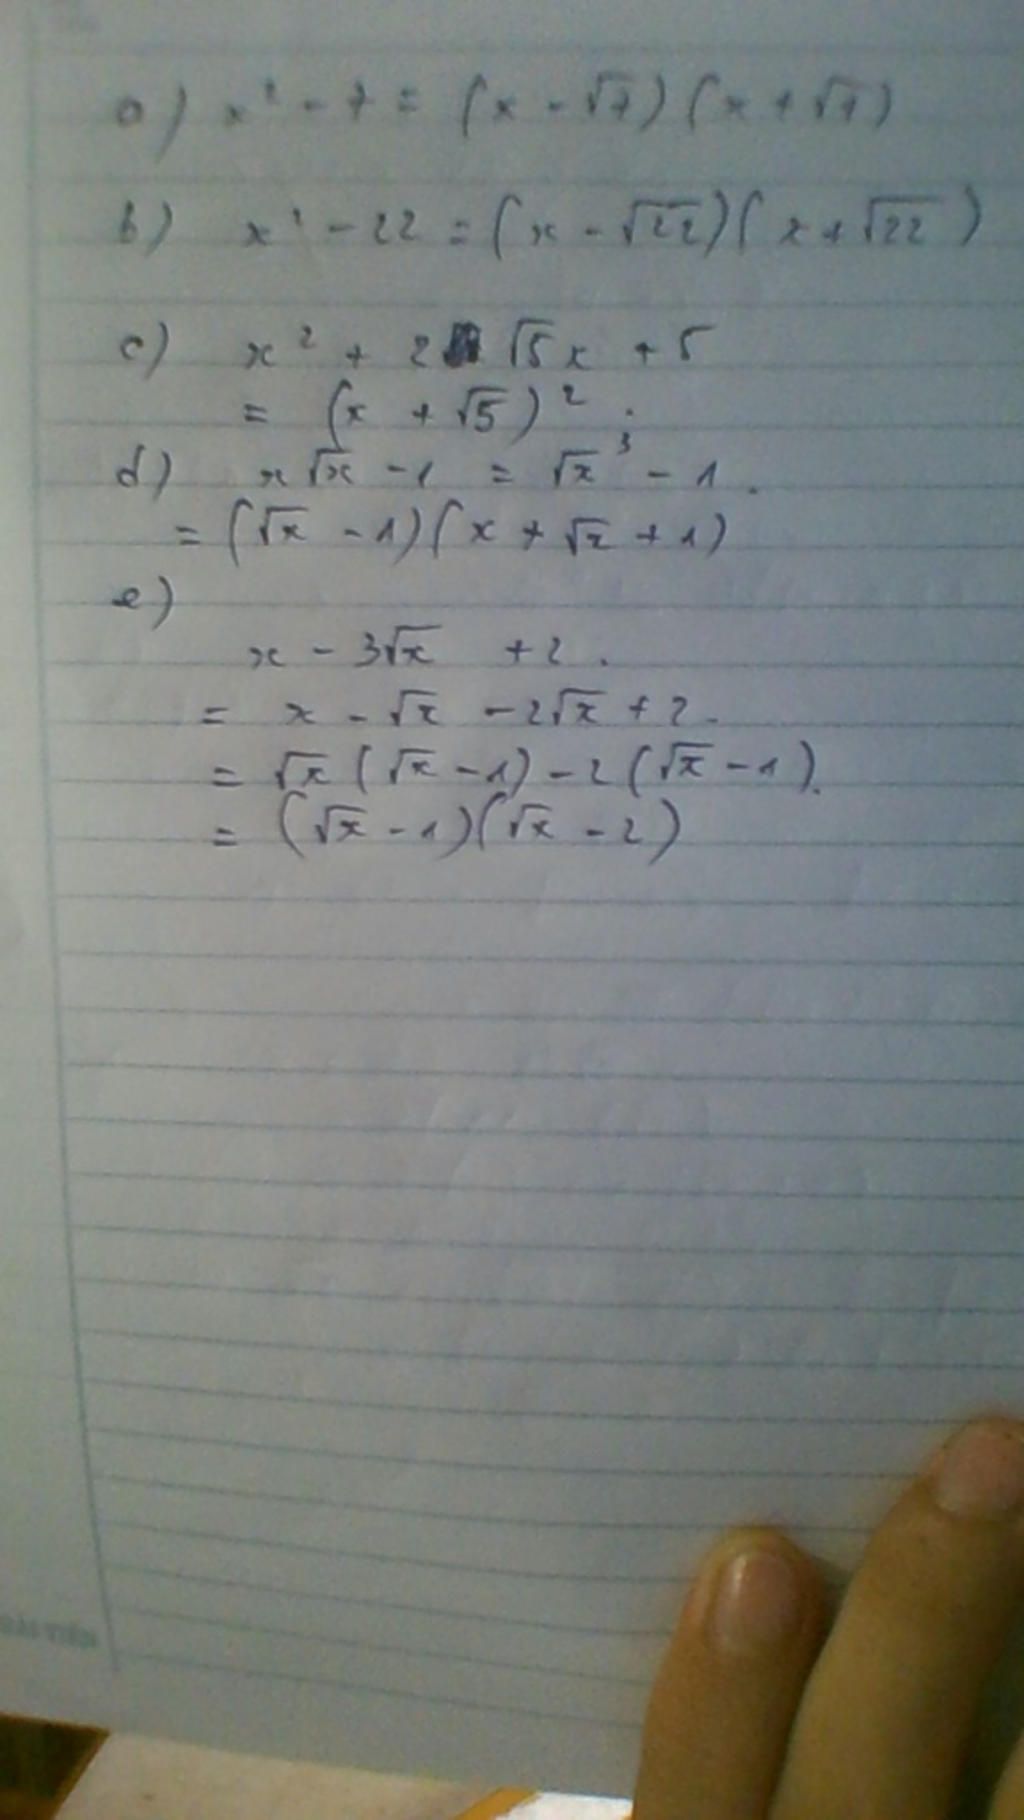 a) x² - 7 = (x - √7)(x + √7)
b) x² - 22 = (x - √22)(x + √22)
c) x² + 2 √5x + 5
= (x + √5)².
d) x√x - 1 = √x³ - 1.
= (√x - 1)(x + √x + 1)
e)
x - 3√x + 2.
= x - √x - 2√x + 2.
= √x(√x - 1) - 2(√x - 1).
= (√x - 1)(√x - 2)